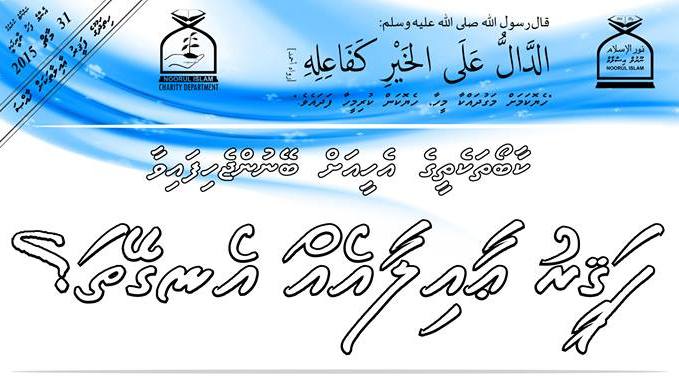 قال رسول الله صلى الله عليه وسلم:
الدَّالُّ عَلَى الخَيْرِ كَفَاعِلِهِ
"ހެޔޮކަމަށް މަގުދައްކާ މީހާ، ހެޔޮކަން ކުރިމީހާ ފަދައެވެ."
نور الإسلام
ނޫރުލް އިސްލާމް
NOORUL ISLAM
NOORUL ISLAM
CHARITY DEPARTMENT
31 މާރޗް 2015
ކާބޯތަކެތީގެ އެހީއަށް ބޭނުންޖެހިފައިވާ
ފަޤީރު ޢާއިލާއެއް އެނގޭތަ؟